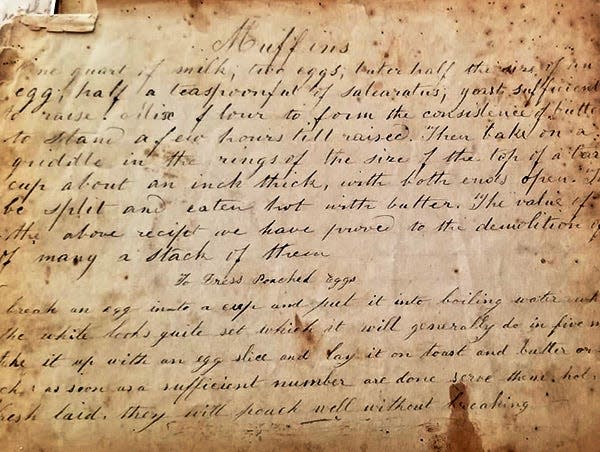 Muffins
One quart of milk, two eggs, buter half the size of an
egg, half a teaspoonful of salearatus; yeast sufficient
to raise. Mix flour to form the consistence of butte
to stand a few hours till raised. Then bake on a
griddle in the rings of the size of the top of a
cup about an inch thick, with both ends open. To
be split and eaten hot with butter. The value of
the above recipt we have proved to the demolition
of many a stack of them
To Dress Poached Eggs
break an egg into a cup and put it into boiling water
the white looks quite set which it will generally do in five
it up with an egg slice and lay it on toast and butter or
as soon as a sufficient number are done serve them hot.
fresh laid. they will poach well without breaking